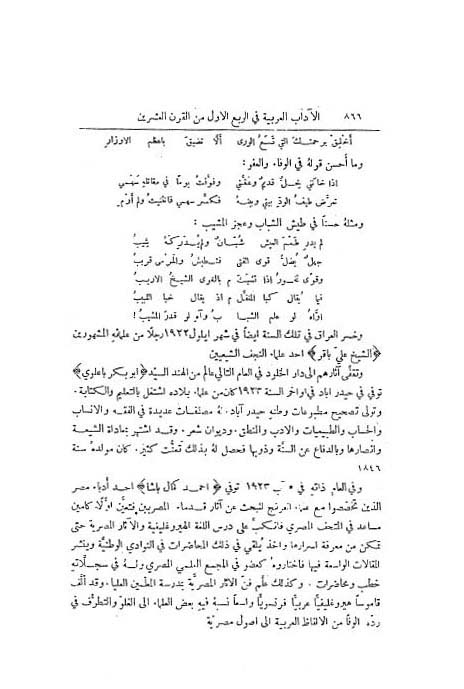 ٨٦٦ الآداب العربية في الربع الاول من القرن العشرين
أخليق برحمتك التي تسع الورى ألا تضيق باعظم الاوزار
وما أحسن قوله في الوفاء والعفو:
اذا خانني خل قديم وعقني وفوقت يوما في مقاتله سهمي
تعرض طيف الود بيني وبينه فكسر سهمي فانثنيت ولم أرم
ومثله حسنا في طيش الشباب وعجز المشيب:
لم يدر طعم العيش شبان ولم يدركه شيب
جهل يضل قوى الفتى فتطيش والمرمى قريب
وقوى تخور اذا تشبث م بالقوى الشيخ الاريب
فيا يقال كبا المغفل م اذ يقال خبا اللبيب
اواه لو علم الشبا ب وآه لو قدر المشيب!
وخسر العراق في تلك السنة ايضا في شهر ايلول ١٩٢٢ رجلا من علمائه المشهورين
﴿الشيخ علي باقر﴾ احد علماء النجف الشيعيين
وتقفى آثارهم الى دار الخلود في العام التالي عالم من الهند السيد ﴿ابو بكر باعلوي﴾
توفي في حيدر اباد في اواخر السنة ١٩٢٣ كان من علماء بلاده اشتغل بالتعليم والكتابة.
وتولى تصحيح مطبوعات وطنه حيدر آباد. له مصنفات عديدة في الفقه والانساب
والحساب والطبيعيات والادب والمنطق. وديوان شعر. وقد اشتهر بمعاداة الشيعة
وانصارها وبالدفاع عن السنة وذويها فحصل له بذلك تعنت كثير. كان مولده سنة
١٨٤٦
وفي العام ذاته في آب ١٩٢٣ توفي ﴿احمد كمال باشا﴾ احد أدباء مصر
الذين تخصصوا مع علماء الفرنج للبحث عن آثار قدماء المصريين فتعين اولا كامين
مساعد في المتحف المصري فانكب على درس اللغة الهيروغليفية والآثار المصرية حتى
تمكن من معرفة اسرارها واخذ يلقي في ذلك المحاضرات في النوادي الوطنية وينشر
المقالات الواسعة فيها فاختاروه كعضو في المجمع العلمي المصري وله في سجلاته
خطب ومحاضرات. وكذلك علم فن الآثار المصرية بمدرسة المعلمين العليا. وقد ألف
قاموسا هيروغليفيا عربيا فرنسويا واسعا نسبه فيه بعض العلماء الى الغلو والتطرف في
رده الوفا من الالفاظ العربية الى اصول مصرية